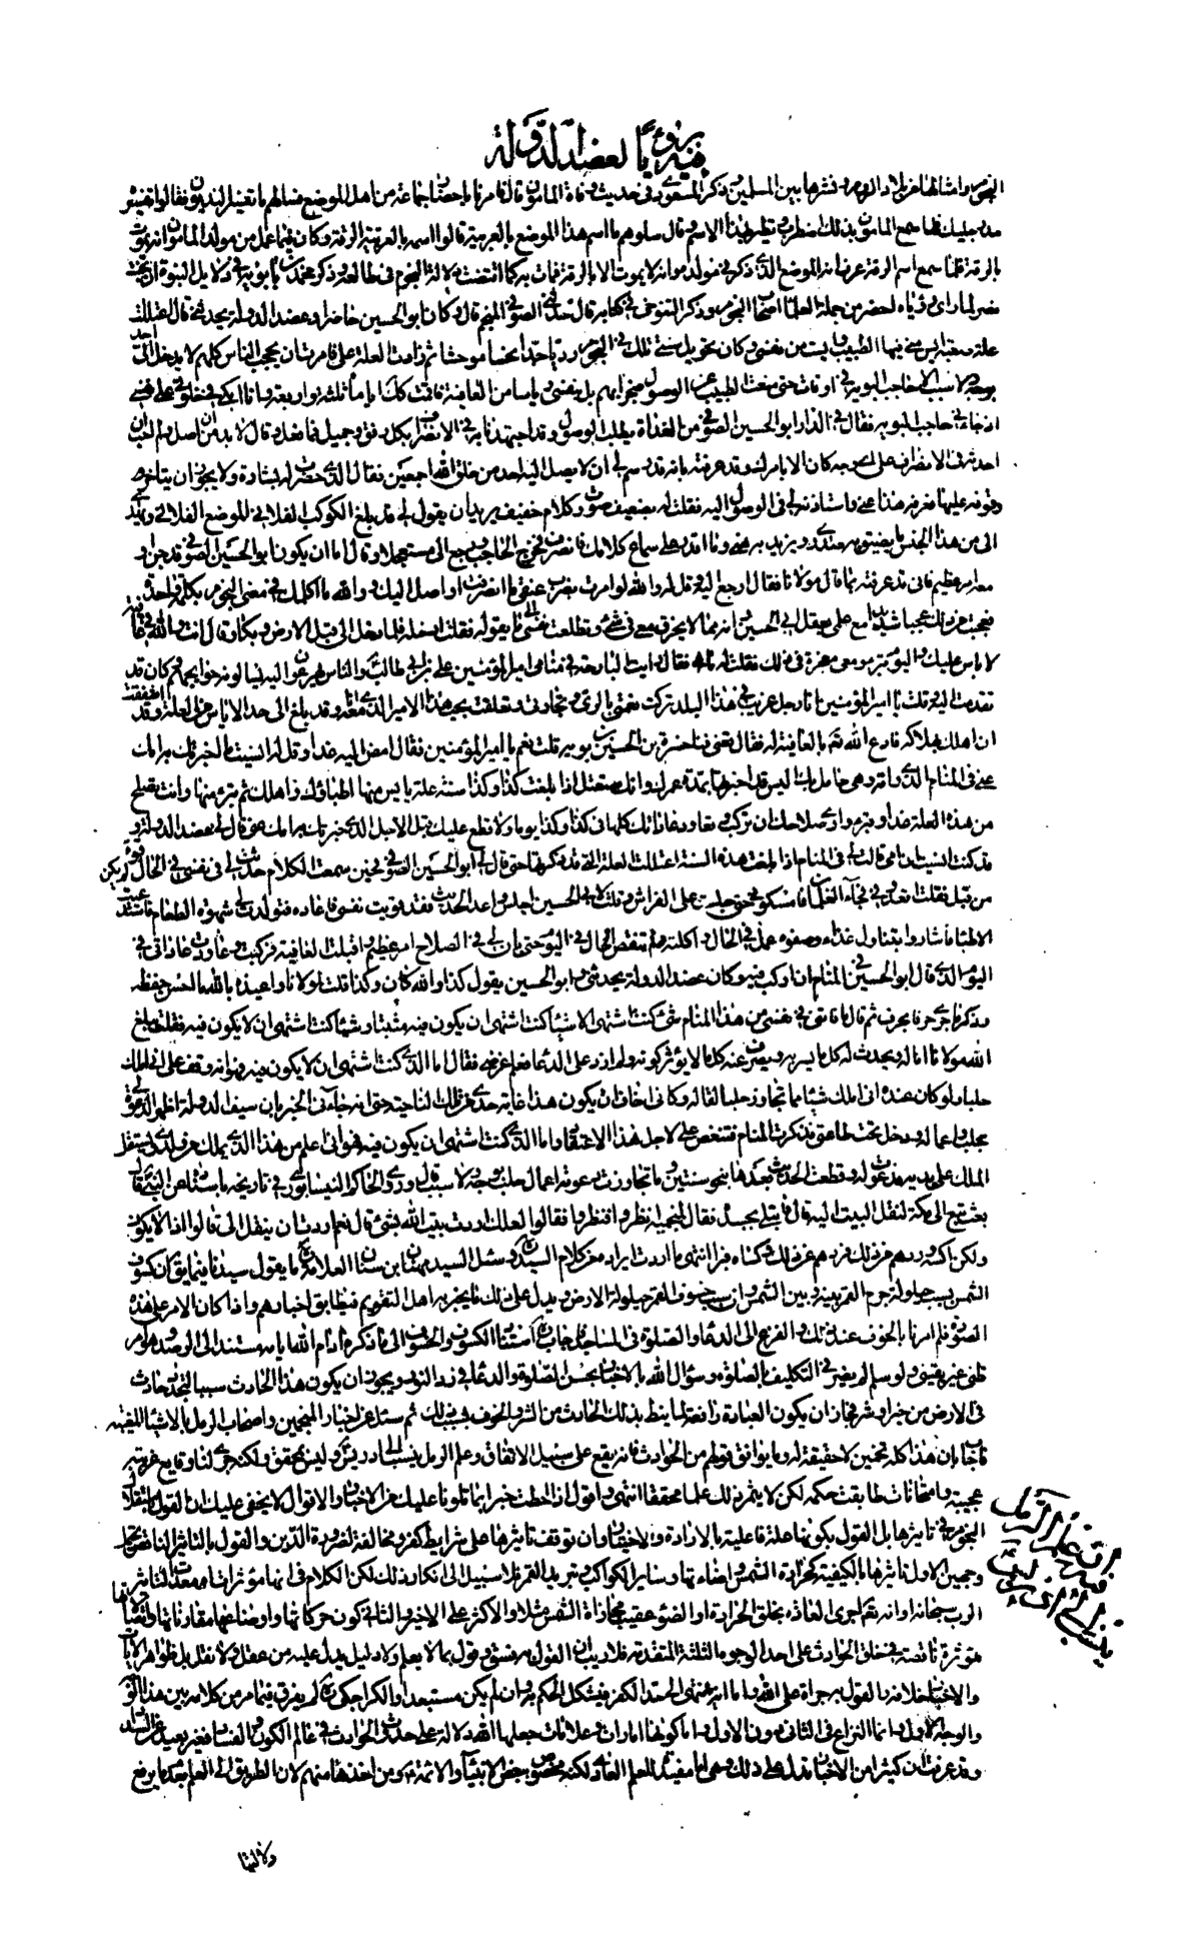 فيه رؤيا لعضد الدولة
النجوم وامثالها من بلاد الروم ونشرها بين المسلمين وذكر المسعودي في حديث وفاة المأمون قال فامر باحضار جماعة من اهل الموضع فسألهم ما تفسير البديدون فقالوا تفسيره
مد رجليك فلما سمع المأمون بذلك اضطرب وتطير بهذا الاسم وقال سلوهم ما اسم هذا الموضع بالعربية قالوا اسمه بالعربية الرقة وكان فيما عمل من مولد المأمون انه يموت
بالرقة فلما سمع اسم الرقة عرف انه الموضع الذي ذكر في مولده وانه لا يموت الا بالرقة فمات به كما اقتضت دلالة النجوم في طالعه وذكر محمد بن بابويه في دلايل النبوة ان بخت
نصر لما راى رؤياه احضر من جملة العلماء اصحاب النجوم وذكر التنوخي في كتابه قال حدثني الصوفي المنجم قال وكان ابو الحسين حاضرا وعضد الدولة يحدثني قال اعتللت
علة صعبة ايس مني فيها الطبيب وايست من نفسي وكان تحويل سنتي تلك في النجوم رديا جدا نحسا موحشا ثم زادت العلة علي فامرت ان يحجب الناس كلهم لا يدخل الي احد
بوجه ولا سبب الا حاجب النوبة في اوقات حتى منعت الطبيب من الوصول ضجرا بهم بل بنفسي وياسا من العافية فاقمت كذلك اياما ثلثة او اربعة وانا ابكي في خلوتي على نفسي
اذ جاءني حاجب النوبة فقال في الدار ابو الحسين الصوفي من الغداة يطلب الوصول وقد اجتهدنا به في الانصراف بكل رفق وجميل فما فعل وقال لا بد من ان اصل ولم احب ان
احدثه في الانصراف على اي وجه كان الا بامرك وقد عرفته بانه قد رسم لي ان لا يصل اليه احد من خلق الله اجمعين فقال الذي حضرت له بشارة ولا يجوز ان يتاخر
وقوفه عليها فعرفه هذا عني واستاذنه لي في الوصول اليه فقلت له بضعيف صوت وكلام خفيف يريد ان يقول لي قد بلغ الكوكب الفلاني الموضع الفلاني ويهذي
الي من هذا الجنس ما يضيق به صدري ويزيد به همي وما اقدر على سماع كلامك فانصرف فخرج الحاجب ورجع الي مستعجلا وقال اما ان يكون ابو الحسين الصوفي قد جن او
معه امر عظيم فاني قد عرفته بما قال مولانا فقال ارجع اليه وقل له والله لو امرت بضرب عنقي ما انصرفت او اصل اليك والله ما اكلمك في معنى النجوم بكلمة واحدة
فعجبت من ذلك عجبا شديدا مع علمي بعقل ابي الحسين وانه مما لا يخرق معي في شيء وتطلعت نفسي الى ما يقوله فقلت ادخله فلما دخل الي قبل الارض وبكى وقال انت والله في عافية
لا باس عليك واليوم تبرأ ومعي معجزة في ذلك فقلت له ما هي فقال رايت البارحة في منامي امير المؤمنين علي بن ابي طالب والناس يهرعون اليه يسألونه حوايجهم وكأني قد
تقدمت اليه وقلت يا امير المؤمنين انا رجل غريب في هذا البلد تركت نعمتي بالري وتجارتي وتعلقت بحب هذا الامير الذي انا معه وقد بلغ الى حد الاياس من العلة وقد اشفقت
ان اهلك بهلاكه فادع الله له بالعافية فقال تعني فنا خسرو بن الحسن بن بويه قلت نعم يا امير المؤمنين فقال امض اليه غدا وقل له انسيت ما اخبرتك به امك
عني في المنام الذي رأته وهي حامل بك اليس قد اخبرتها بمدة عمرك وانك ستعتل اذا بلغت كذا وكذا سنة علة يايس منها اطباؤك واهلك ثم تبرء منها وانت تصلح
من هذه العلة غدا وتبرء وارى صلاحك ان تركب وتعاود عاداتك كلها في كذا وكذا يوما ولا قطع عليك قبل الاجل الذي خبرتك به امك عني قال لي عضد الدولة وقد
قد كنت انسيت ان امي قالت لي في المنام اذا بلغت هذه السنة اعتللت العلة التي قد ذكرها حتى قال لي ابو الحسين الصوفي فحين سمعت الكلام حدثت لي في نفسي في الحال قوة لم يكن
من قبل فقلت اقعدوني فجاء الغلمان فامسكوني حتى جلست على الفراش وقلت لابي الحسين اجلس واعد الحديث فقد قويت نفسي فاعاده فتولدت لي شهوة الطعام فاستدعيت
الاطباء فاشاروا بتناول غذاء وصفوه عمل في الحال واكلته ولم تنقض الحال في اليوم حتى بان لي في الصلاح امر عظيم واقبلت العافية فركبت وعاودت عاداتي في
اليوم الذي قال ابو الحسين في المنام ان اركب فيه وكان عضد الدولة يحدثني وابو الحسين يقول كذا والله كان وكذا قلت لمولانا واعيذه بالله ما احسن حفظه
وذكره ما جرى حرفا بحرف ثم قال ما فاتني في نفسي من هذا المنام شيء كنت اشتهي الاشياء كنت اشتهي ان يكون فيه مثبتا وشيئا كنت اشتهي ان لا يكون فيه فقلت بلغ
الله مولانا اماله ويحدث له كل ما يسر به ويصرف عنه كل ما لا يؤثر كونه ولم ازد على الدعاء فعلم غرضي فقال اما الذي كنت اشتهي ان لا يكون فيه فهو انه وقف على اني املك
حلبا ولو كان عنده اني املك شيئا مما تجاوز حلبا لقاله وكأني اخاف ان يكون هذا غاية حدي من تلك الناحية حتى انه جاءني الخبر بان سيف الدولة اظهر الدعوة لي
بحلب واعمالها ودخل تحت طاعتي فذكرت المنام فتنغص علي لاجل هذا الاعتقاد واما الذي كنت اشتهي ان يكون فيه فهو اني اعلم من هذا الذي يملك من ولدي ويستقر
الملك على يديه فدعوت له وقطعت الحديث بعدها بنحو سنتين وما تجاوزت دعوته اعمال حلب بوجه ولا سبب قال وروى الحاكم النيسابوري في تاريخه باسناده عن الليث قال
بعث تبع الى مكة لنقل البيت اليه قال فابتلي بجسده فقال لمنجميه انظروا فنظروا فقالوا لعلك اردت ببيت الله بشيء قال نعم اردت ان ينقل الي قالوا اذا لا يكون
ولكن اكسه وردهم عن ذلك فردهم عن ذلك وكساه فبرأ انتهى ما اردت ايراده من كلام السيد وسئل السيد مهنا بن سنان العلامة ما يقول سيدنا فيما يقال ان كسوف
الشمس بسبب حيلولة جرم القمر بينه وبين الشمس وان سبب خسوف القمر حيلولة الارض ويدل على ذلك ما يخبر به اهل التقويم فيطابق اخبارهم واذا كان الامر على هذه
الصورة فلم امرنا بالخوف عند ذلك والفزع الى الدعاء والصلوة في المساجد فاجاب استناد الكسوف والخسوف الى ما ذكره ادام الله ايامه مستند الى الرصد وهو امر
ظني غير يقيني ولو سلم لم يضر في التكليف بالصلوة وسؤال الله بالاحسان بحسن الصلوة والدعاء في رد النور ويجوز ان يكون هذا الحادث سببا لتجدد حادث
في الارض من خير او شر فجاز ان يكون العبادة رافعة لما نيط بذلك الحادث من الشر والخوف بسبب ذلك ثم سئل عن اخبار المنجمين واصحاب الرمل بالاشياء المغيبة
فاجاب بان هذا كله تخمين لا حقيقة له وما يوافق قولهم من الحوادث فانه يقع على سبيل الاتفاق وعلم الرمل ينسب الى ادريس وليس بمحقق ولكنه جرى لنا وقايع غريبة
عجيبة وامتحانات طابقت حكمه لكن لا يثمر ذلك علما محققا انتهى واقول اذا احطت خبرا بما تلونا عليك من الاخبار والاقوال لا يخفى عليك ان القول باستقلال
النجوم في تأثيرها بل القول بكونها علة فاعلية بالارادة والاختيار وان توقف تأثيرها على شرايط كفر ومخالفة لضرورة الدين والقول بالتأثير الناقص يحتمل
وجهين الاول تأثيرها بالكيفية كحرارة الشمس واضاءتها وساير الكواكب وتبريد القمر فلا سبيل الى انكار ذلك لكن الكلام في انها مؤثرات او معدات لتأثير
الرب سبحانه او انه تعالى اجرى العادة بخلق الحرارة او الضوء عقيب محاذاة الشمس مثلا والاكثر على الاخير والثاني كون حركاتها واوضاعها ومقارناتها واتصالاتها
مؤثرة ناقصة في خلق الحوادث على احد الوجوه الثلثة المتقدمة فلا ريب ان القول به فسق وقول بما لا يعلم ولا دليل يدل عليه من عقل ولا نقل بل ظواهر الايات
والاخبار خلافه والقول به جرأة على الله واما انه ينتهي الى حد الكفر فيشكل الحكم به وان لم يكن مستبعدا والكراجكي لم يفرق فيما مر من كلامه بين هذا الوجه
والوجه الاول وانما النزاع في الثاني دون الاول واما كونها امارات وعلامات جعلها الله دلالة على حدوث الحوادث في عالم الكون والفساد فغير بعيد عن السداد
وقد عرفت ان كثيرا من الاخبار تدل على ذلك وهي اما مفيدة للعلم العادي لكنه مخصوص ببعض الانبياء والائمة ومن اخذها منهم لان الطريق الى العلم بعدم ما يرفع
ان علم الرمل
ينسب الى ادريس
ولا لتها